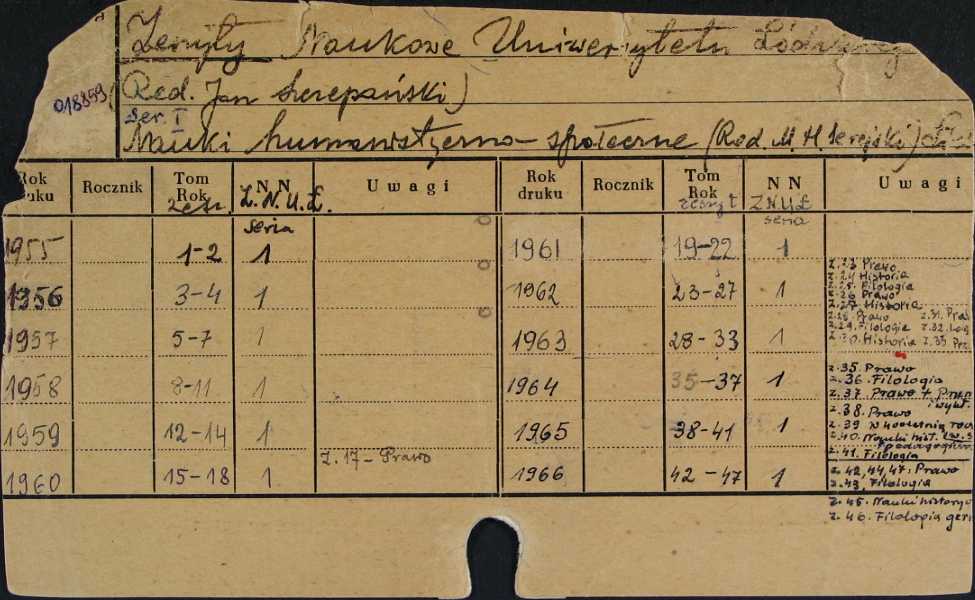 Zeszyty Naukowe Uniwersytetu
018859
Red. Jan Szczepański)
Ser. I
Nauki humanistyczno-społeczne (Red. M. H. Serejski)
Rok druku Rocznik Tom Rok zesz. N N Z.N.U.Ł. seria Uwagi Rok druku Rocznik Tom Rok zeszyt N N Z.N.U.Ł seria Uwagi
1955 1-2 1 1961 19-22 1
1956 3-4 1 1962 23-27 1
z.23 Prawo
z.24 Historia
z.25. Filologia
z.26 Prawo
z.27 Historia
1957 5-7 1 1963 28-33 1
z.28. Prawo z.31.
z.29. Filologia z.32.
z.30. Historia z.33
1958 8-11 1 1964 35-37 1
z.35. Prawo
z.36. Filologia
z.37 Prawo
1959 12-14 1 1965 38-41 1
z.38. Prawo
z.39
z.40. Nauki hist.
z.41. Filologia
1960 15-18 1 z.17 - Prawo 1966 42-47 1
z.42, 44, 47. Prawo
z.43, Filologia
z.45. Nauki history
z.46. Filologia ger